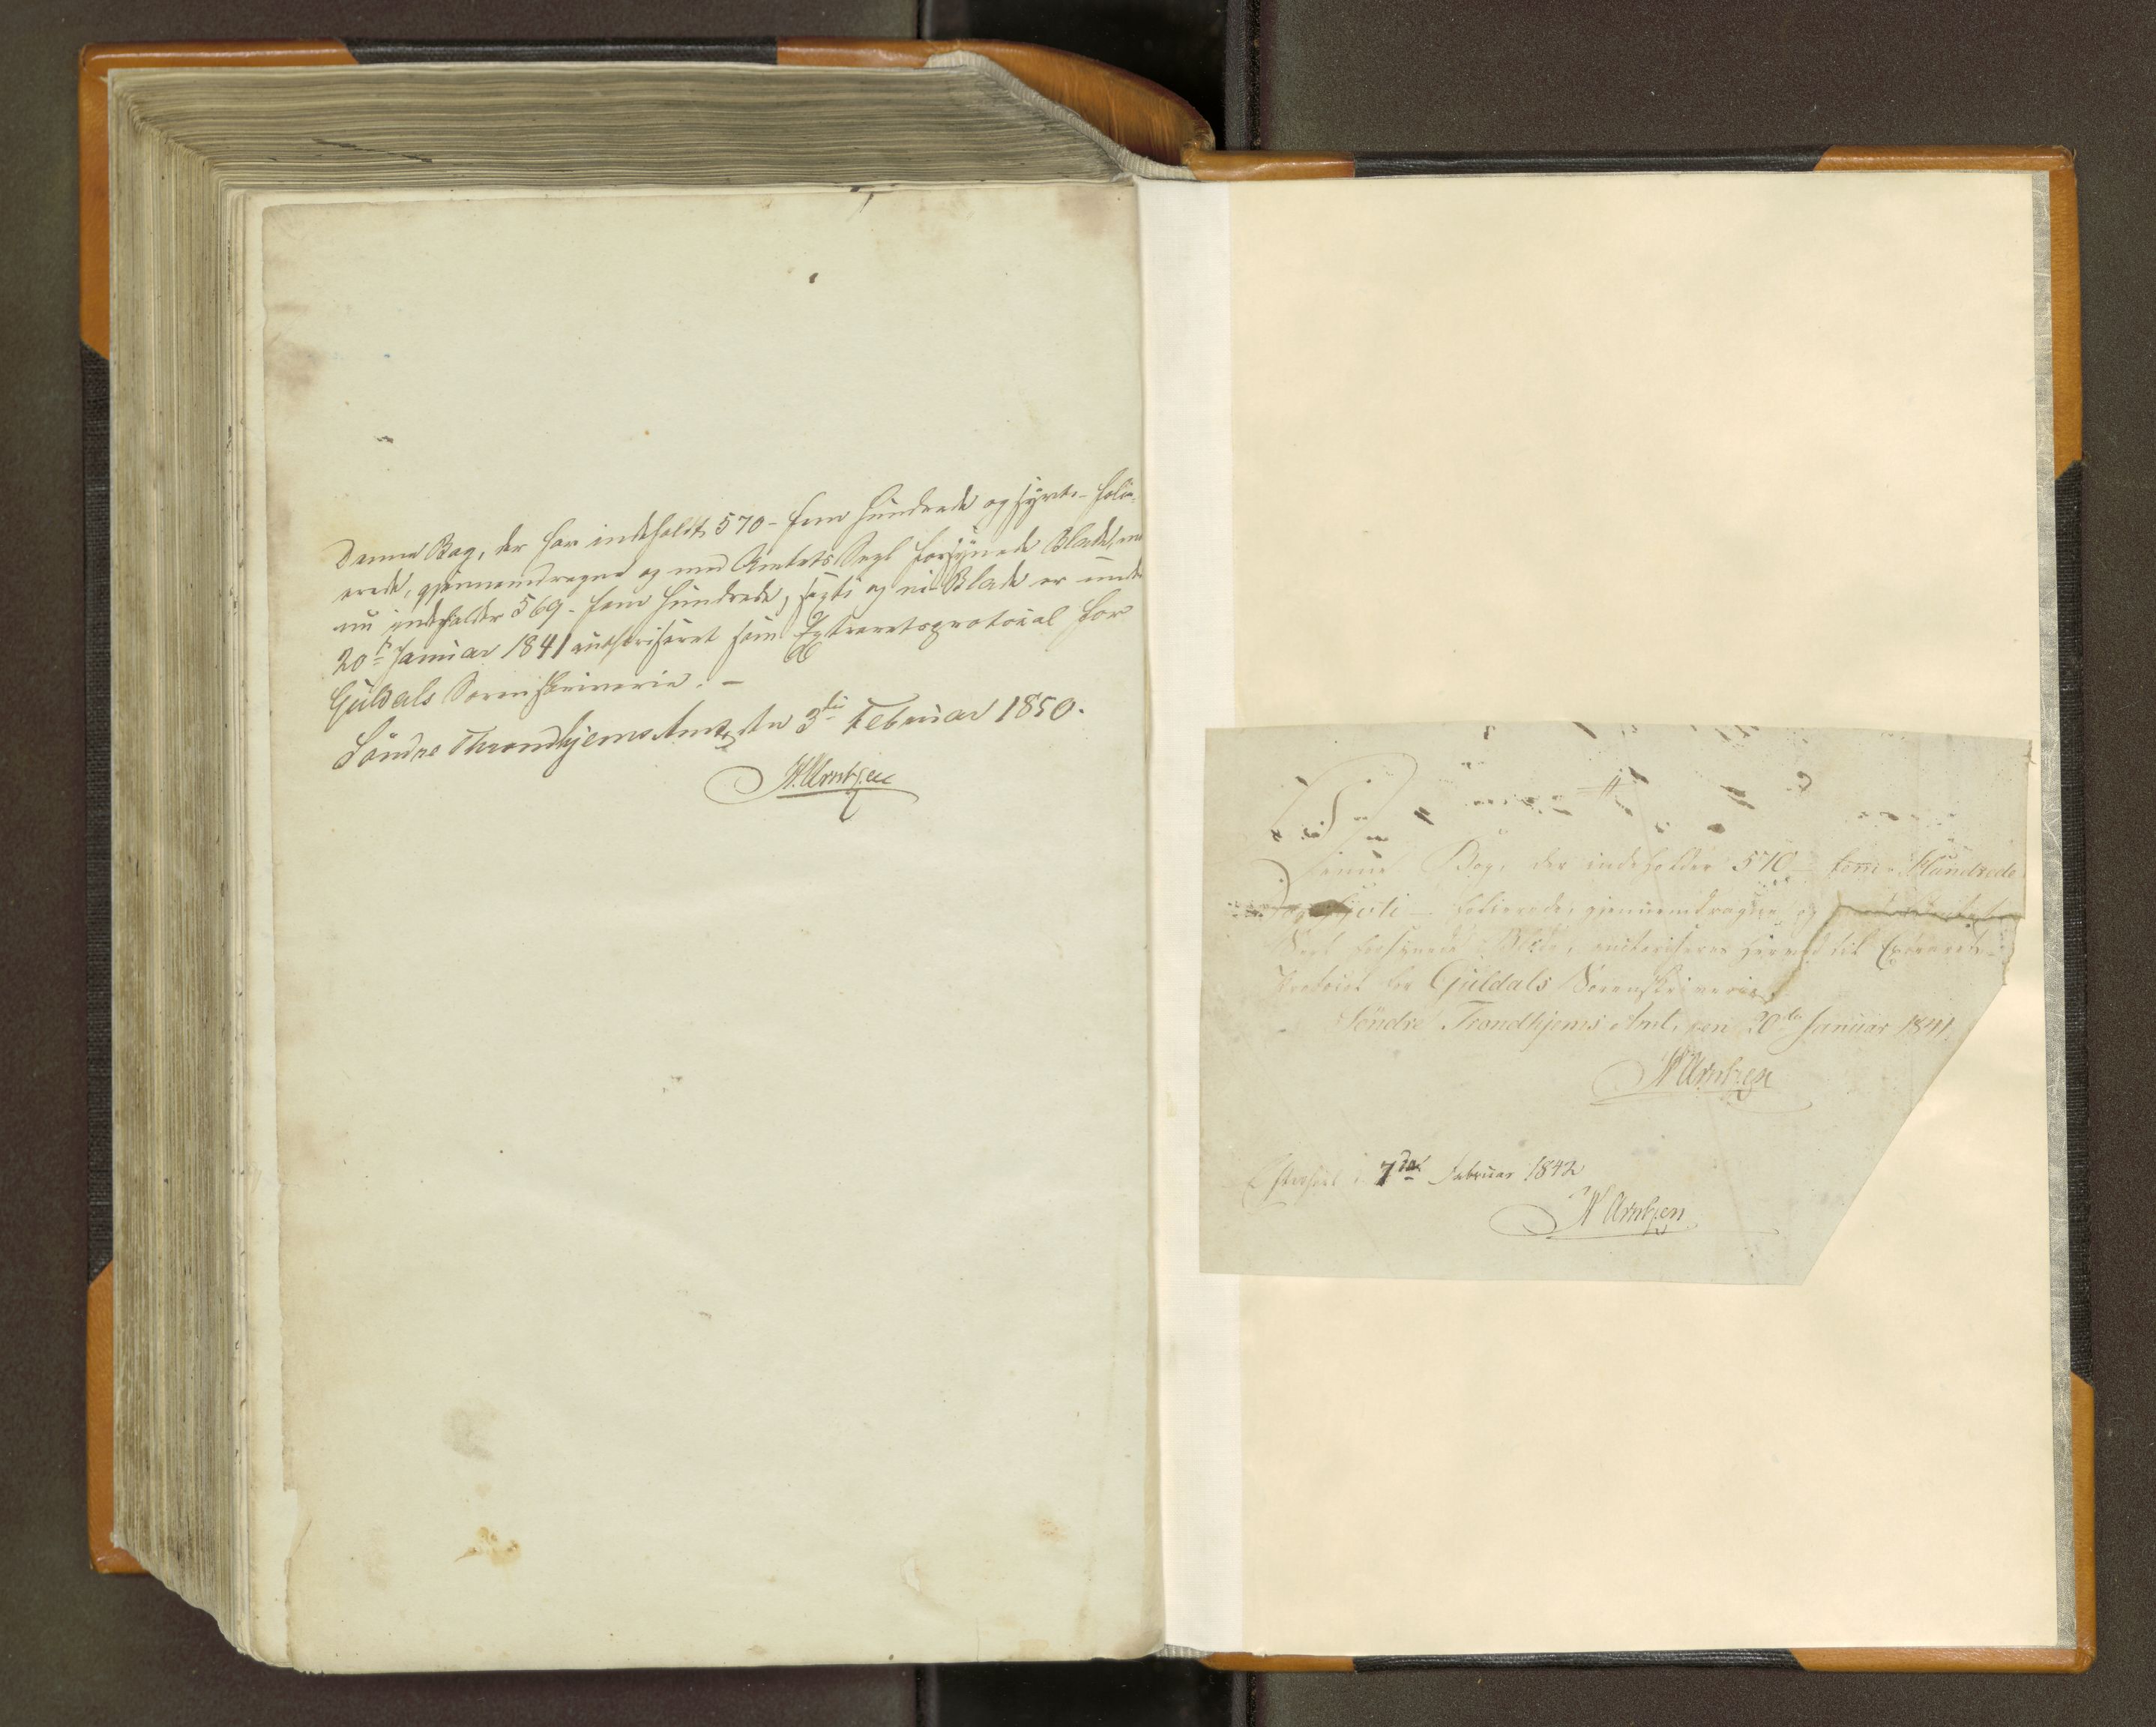 Denne Bog, der har indeholdt 570 - fem hundrede og syvti - folie-
rede, gjennemdragne og med Amtets Segl forsynede Blade, men
nu indeholder 569 - fem hundrede, sexti og ni Blade er under
20de Januar 1841 authoriseret som Extraretsprotocol for
Guldals Sorenskriverie. -
Söndre Throndhjems Amt, den 3die Februar 1850.
H. Arntzen
Denne Bog, der indeholder 570 - fem Hundrede
og syvti - folierede, gjennemdragne og
Segl forsynede Blade, autoriseres herved til Extrarets-
Protocol for Guldals Sorenskriverie.
Söndre Trondhjems Amt, den 20de Januar 1841.
H Arntzen
Efterseet 7de Februar 1842
H Arntzen